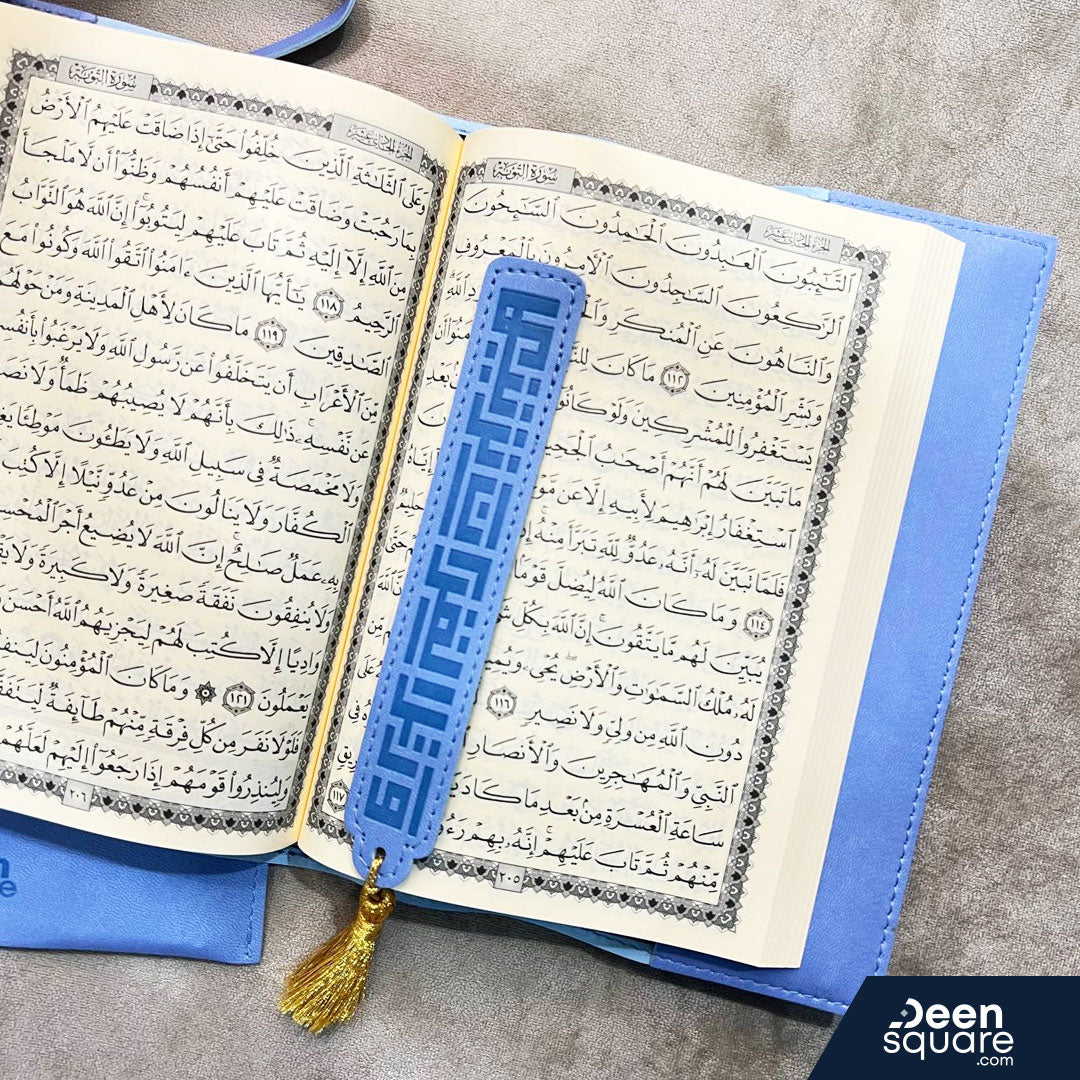 سُورَةُ التَّوْبَةِ
الجزء الحادي عشر
ٱلتَّٰٓئِبُونَ ٱلْعَٰبِدُونَ ٱلْحَٰمِدُونَ ٱلسَّٰٓئِحُونَ
ٱلرَّٰكِعُونَ ٱلسَّٰجِدُونَ ٱلْءَامِرُونَ بِٱلْمَعْرُوفِ
وَٱلنَّاهُونَ عَنِ ٱلْمُنكَرِ ٱللَّهِ
وَبَشِّرِ ٱلْمُؤْمِنِينَ ١١٢ مَا كَانَ أَن
يَسْتَغْفِرُوا۟ لِلْمُشْرِكِينَ وَلَوْ كَانُوٓا۟ بَعْدِ
مَا تَبَيَّنَ لَهُمْ أَنَّهُمْ أَصْحَٰبُ ٱلْجَحِيمِ
ٱسْتِغْفَارُ إِبْرَٰهِيمَ لِأَبِيهِ إِلَّا عَن إِيَّاهُ
فَلَمَّا تَبَيَّنَ لَهُۥٓ أَنَّهُۥ عَدُوٌّ لِّلَّهِ تَبَرَّأَ مِنْهُ حَلِيمٌ
١١٤ وَمَا كَانَ ٱللَّهُ لِيُضِلَّ قَوْمًۢا حَتَّىٰ
يُبَيِّنَ لَهُم مَّا يَتَّقُونَ إِنَّ ٱللَّهَ بِكُلِّ
لَهُۥ مُلْكُ ٱلسَّمَٰوَٰتِ وَٱلْأَرْضِ يُحْىِۦ مِّن
دُونِ ٱللَّهِ مِن وَلِىٍّ وَلَا نَصِيرٍ ١١٦ عَلَى
ٱلنَّبِىِّ وَٱلْمُهَٰجِرِينَ وَٱلْأَنصَارِ فِى
سَاعَةِ ٱلْعُسْرَةِ مِنۢ بَعْدِ مَا كَادَ
مِّنْهُمْ ثُمَّ تَابَ عَلَيْهِمْ إِنَّهُۥ بِهِمْ ١١٧
٢٠٥
سُورَةُ التَّوْبَةِ
الجزء الحادي عشر
وَعَلَى ٱلثَّلَٰثَةِ ٱلَّذِينَ خُلِّفُوا۟ حَتَّىٰٓ إِذَا ضَاقَتْ عَلَيْهِمُ ٱلْأَرْضُ
بِمَا رَحُبَتْ وَضَاقَتْ عَلَيْهِمْ أَنفُسُهُمْ وَظَنُّوٓا۟ أَن لَّا مَلْجَأَ
مِنَ ٱللَّهِ إِلَّآ إِلَيْهِ ثُمَّ تَابَ عَلَيْهِمْ لِيَتُوبُوٓا۟ إِنَّ ٱللَّهَ هُوَ ٱلتَّوَّابُ
ٱلرَّحِيمُ ١١٨ يَٰٓأَيُّهَا ٱلَّذِينَ ءَامَنُوا۟ ٱتَّقُوا۟ ٱللَّهَ وَكُونُوا۟ مَعَ
ٱلصَّٰدِقِينَ ١١٩ مَا كَانَ لِأَهْلِ ٱلْمَدِينَةِ وَمَنْ حَوْلَهُم
مِّنَ ٱلْأَعْرَابِ أَن يَتَخَلَّفُوا۟ عَن رَّسُولِ ٱللَّهِ وَلَا يَرْغَبُوا۟ بِأَنفُسِهِمْ
عَن نَّفْسِهِۦ ذَٰلِكَ بِأَنَّهُمْ لَا يُصِيبُهُمْ ظَمَأٌ وَلَا
وَلَا مَخْمَصَةٌ فِى سَبِيلِ ٱللَّهِ وَلَا يَطَـُٔونَ مَوْطِئًا
ٱلْكُفَّارَ وَلَا يَنَالُونَ مِنْ عَدُوٍّ نَّيْلًا إِلَّا كُتِبَ
بِهِۦ عَمَلٌ صَٰلِحٌ إِنَّ ٱللَّهَ لَا يُضِيعُ أَجْرَ ٱلْمُحْسِنِينَ
وَلَا يُنفِقُونَ نَفَقَةً صَغِيرَةً وَلَا كَبِيرَةً وَلَا
وَادِيًا إِلَّا كُتِبَ لَهُمْ لِيَجْزِيَهُمُ ٱللَّهُ أَحْسَنَ
يَعْمَلُونَ ١٢١ وَمَا كَانَ ٱلْمُؤْمِنُونَ
فَلَوْلَا نَفَرَ مِن كُلِّ فِرْقَةٍ مِّنْهُمْ طَآئِفَةٌ
وَلِيُنذِرُوا۟ قَوْمَهُمْ إِذَا رَجَعُوٓا۟ إِلَيْهِمْ لَعَلَّهُمْ
٢٠٦
Deen
square
.com